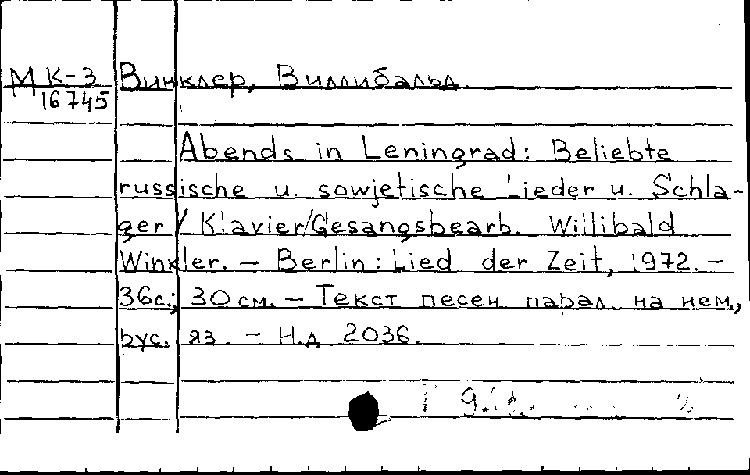 МК-3 Винклер, Виллибальд.
16745
Abends in Leningrad: Beliebte
russische u. sowjetische Lieder u. Schla-
ger / Klavier/Gesangsbearb. Willibald
Winkler. – Berlin: Lied der Zeit, 1972. –
36с.; 30 см. – Текст песен парал. на нем.,
рус. яз. – Н.д 2036.